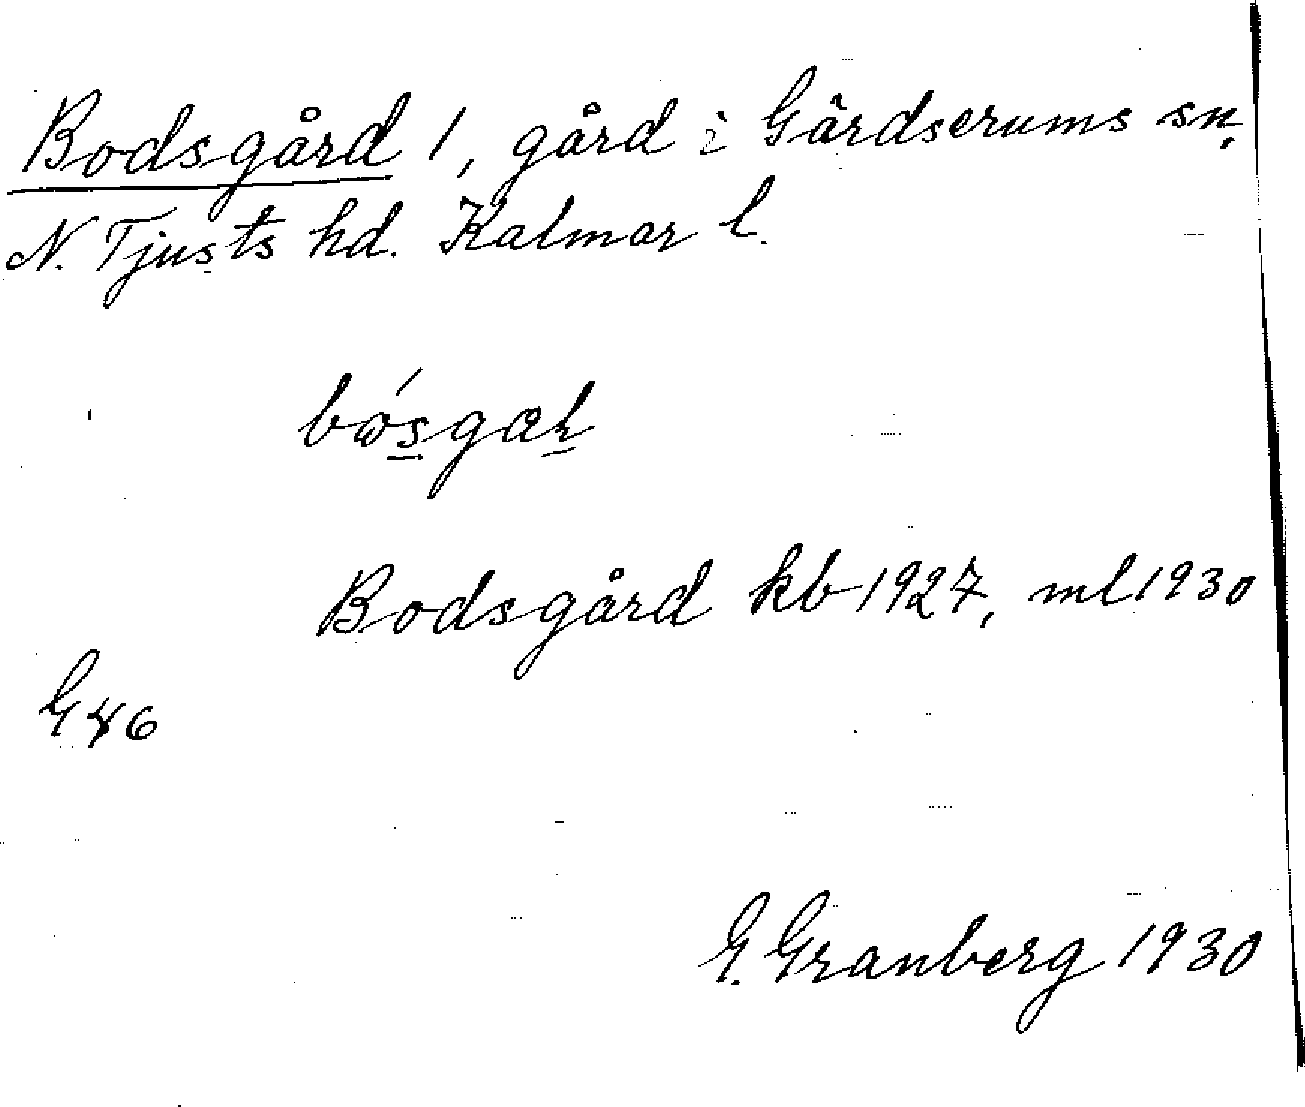 Bodsgård 1, gård i Gärdserums sn,
N. Tjusts hd. Kalmar l.
Bodsgård kb 1927, ml 1930
G. Granberg 1930